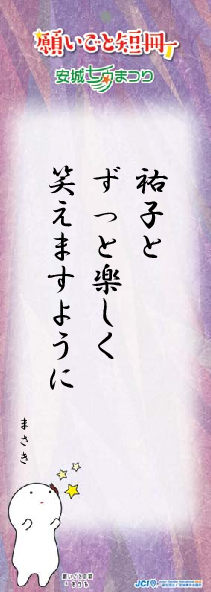 願いごと短冊
安城七夕まつり
祐子と
ずっと楽しく
笑えますように
まさき
JCI